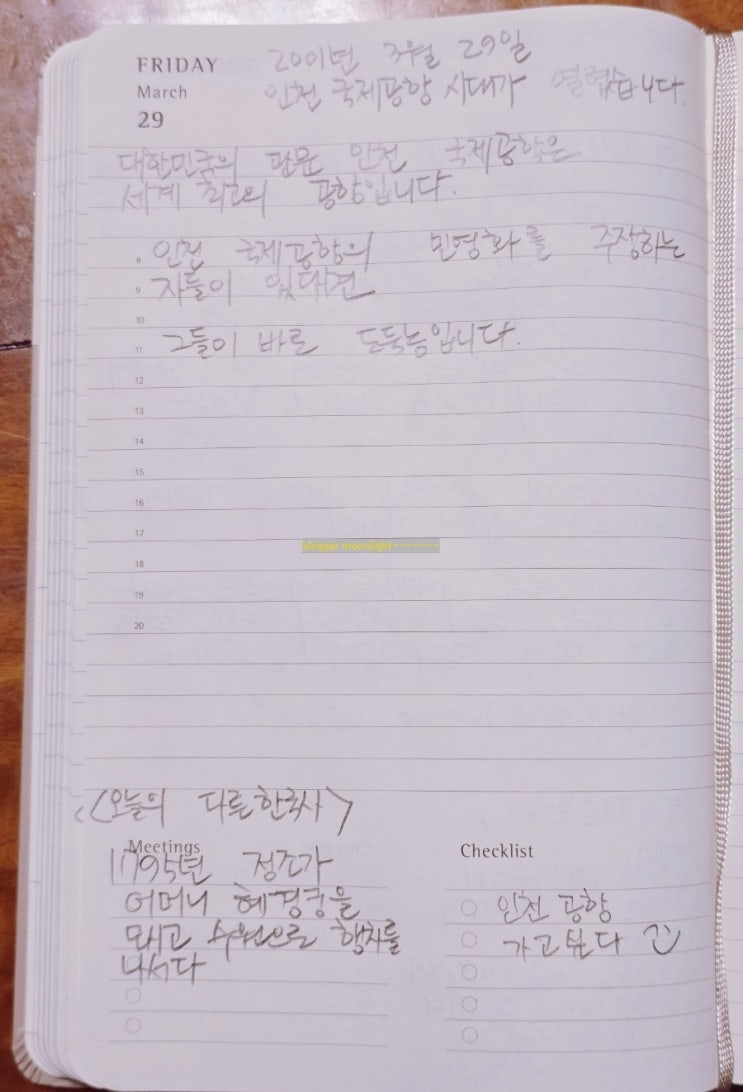 FRIDAY
March
29
2001년 3월 29일
인천 국제공항 시대가 열렸습니다.
대한민국의 관문 인천 국제공항은
세계 최고의 공항입니다.
8 인천 국제공항의 민영화를 주장하는
9 자들이 있대면
10
11 그들이 바로 도둑놈입니다.
12
13
14
15
16
17
blogger moonlight-------
18
19
20
<오늘의 다른 한국사>
Meetings
1795년 정조가
어머니 혜경궁을
모시고 수원으로 행차를
나서다
Checklist
인천 공항
가고 싶다